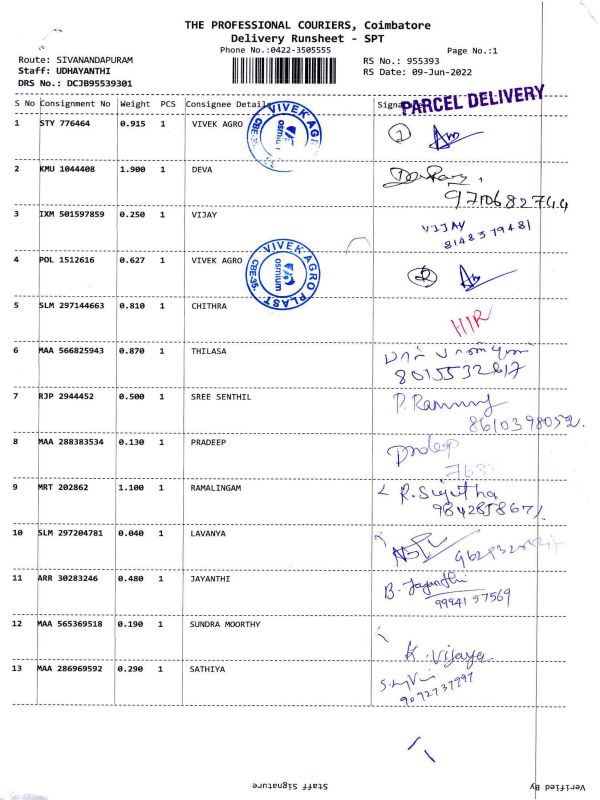 THE PROFESSIONAL COURIERS, Coimbatore
Delivery Runsheet - SPT
Phone No.:0422-3505555
Page No.:1
Route: SIVANANDAPURAM
Staff: UDHAYANTHI
DRS No.: DCJB95539301
RS No.: 955393
RS Date: 09-Jun-2022
PARCEL DELIVERY
S No Consignment No Weight PCS Consignee Details
1 STY 776464 0.915 1 VIVEK AGRO 1
VIVEK AGRO
osmium
CBE-35
2 KMU 1044408 1.900 1 DEVA
9710682744
3 IXM 501597859 0.250 1 VIJAY VIJAY
8148379481
4 POL 1512616 0.627 1 VIVEK AGRO 2
VIVEK AGRO PLAST
osmium
CBE-35
5 SLM 297144663 0.810 1 CHITHRA
6 MAA 566825943 0.870 1 THILASA
8015532617
7 RJP 2944452 0.500 1 SREE SENTHIL
8610398052
8 MAA 288383534 0.130 1 PRADEEP
9 MRT 202862 1.100 1 RAMALINGAM R. Sujitha
10 SLM 297204781 0.040 1 LAVANYA
11 ARR 30283246 0.480 1 JAYANTHI B. Jayanthi
9994157569
12 MAA 565369518 0.190 1 SUNDRA MOORTHY
K. Vijaya
13 MAA 286969592 0.290 1 SATHIYA
9092737997
Staff Signature
Verified By